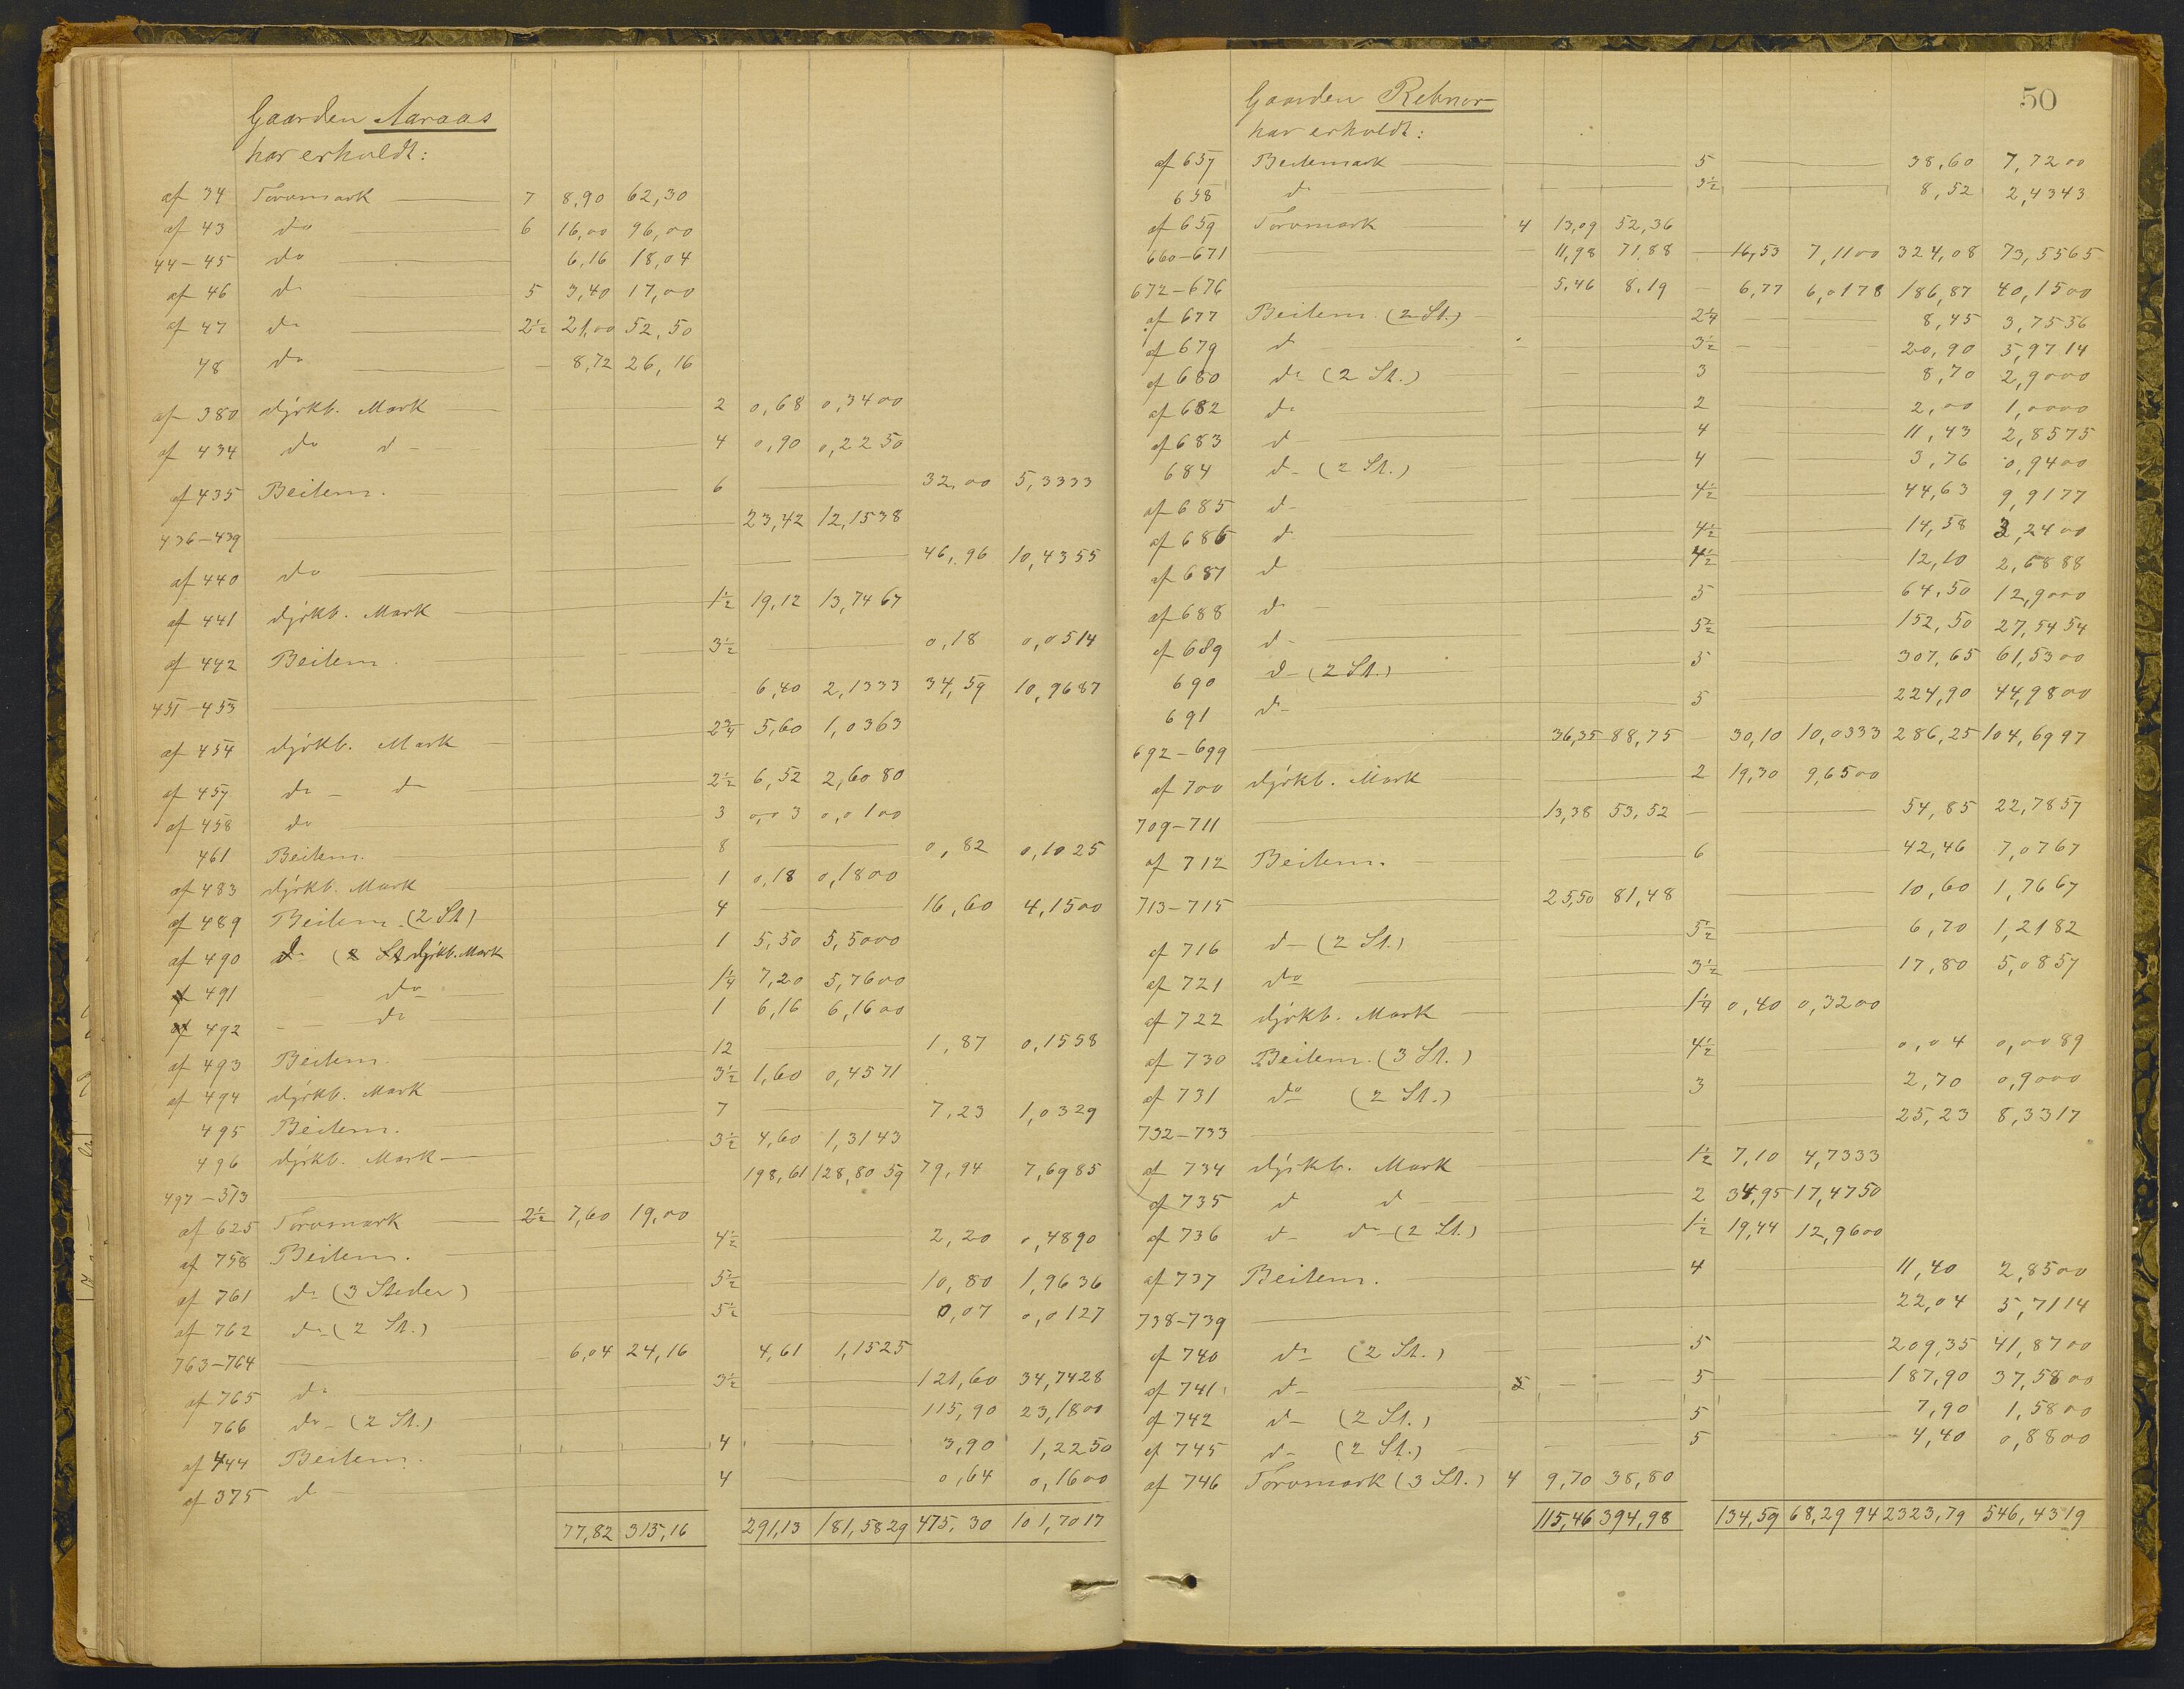 Gaarden Aaraas
har erholdt:
af 34 Torvmark 7 8,90 62,30
af 43 do 6 16,00 96,00
44-45 do 6,16 18,04
af 46 do 5 3,40 17,00
af 47 do 2½ 21,00 52,50
48 do 8,72 26,16
af 380 djrkb. Mark 2 0,68 0,3400
af 434 do d- 4 0,90 0,2250
af 435 Beitem. 6 32,00 5,3333
436-439 23,42 12,1538
af 440 do 46,96 10,4355
af 441 djrkb. Mark 1½ 19,12 13,7467
af 442 Beitem. 3½ 0,18 0,0514
451-453 6,40 2,1333 34,59 10,9687
af 454 djrkb. Mark 2¾ 5,60 1,0363
af 457 do - do 2½ 6,52 2,6080
af 458 do 3 0,03 0,0100
461 Beitem. 8 0,82 0,1025
af 483 djrkb. Mark 1 0,18 0,1800
af 489 Beitem. (2 St) 4 16,60 4,1500
af 490 djrkb. Mark 1 5,50 5,5000
491 do 1¼ 7,20 5,7600
492 do 1 6,16 6,1600
af 493 Beitem. 12 1,87 0,1558
af 494 djrkb. Mark 3½ 1,60 0,4571
495 Beitem. 7 7,23 1,0329
496 djrkb. Mark 3½ 4,60 1,3143
497-513 198,61 128,8059 79,94 7,6985
af 625 Torvmark 2½ 7,60 19,00
af 758 Beitem. 4½ 2,20 0,4890
af 761 do (3 Steder) 5½ 10,80 1,9636
af 762 do (2 St.) 5½ 0,07 0,0127
763-764 6,04 24,16 4,61 1,1525
af 765 do 3½ 121,60 34,7428
766 do - (2 St.) 115,90 23,1800
af 444 Beitem. 4 3,90 1,2250
af 375 d. 4 0,64 0,1600
77,82 315,16 291,13 181,5829 475,30 101,7017
50
Gaarden Rebnor
har erholdt:
af 657 Beitemark 5 38,60 7,7200
658 do 3½ 8,52 2,4343
af 659 Torvmark 4 13,09 52,36
660-671 11,98 71,88 16,53 7,1100 324,08 73,5565
672-676 5,46 8,19 6,77 6,0178 186,87 40,1500
af 677 Beitem. (2 St.) 2¼ 8,45 3,7556
af 679 d 3½ 20,90 5,9714
af 680 do (2 St.) 3 8,70 2,9000
af 682 do 2 2,00 1,0000
af 683 d 4 11,43 2,8575
684 d- (2 St.) 4 3,76 0,9400
af 685 d- 4½ 44,63 9,9177
af 686 d 4½ 14,58 3,2400
af 687 d 4½ 12,10 2,6888
af 688 d 5 64,50 12,9000
af 689 d- 5½ 152,50 27,5454
690 d- (2 St.) 5 307,65 61,5300
691 d- 5 224,90 44,9800
692-699 36,35 88,75 30,10 10,0333 286,25 104,6997
af 700 djrkb. Mark 2 19,30 9,6500
709-711 13,38 53,52 54,85 22,7857
af 712 Beitem. 6 42,46 7,0767
713-715 25,50 81,48 10,60 1,7667
af 716 d- (2 St.) 5½ 6,70 1,2182
af 721 do 3½ 17,80 5,0857
af 722 djrkb. Mark 1¼ 0,40 0,3200
af 730 Beitem. (3 St.) 4½ 0,04 0,0089
af 731 do (2 St.) 3 2,70 0,9000
732-733 25,23 8,3317
af 734 djrkb. Mark 1½ 7,10 4,7333
af 735 d d 2 34,95 17,4750
af 736 d- do (2 St.) 1½ 19,44 12,9600
af 737 Beitem. 4 11,40 2,8500
738-739 22,04 5,7114
af 740 do (2 St.) 5 209,35 41,8700
af 741 d- 5 187,90 37,5800
af 742 d- (2 St.) 5 7,90 1,5800
af 745 d- (2 St.) 5 4,40 0,8800
af 746 Torvmark (3 St.) 4 9,70 38,80
115,46 394,98 134,59 68,2994 2323,79 546,4319